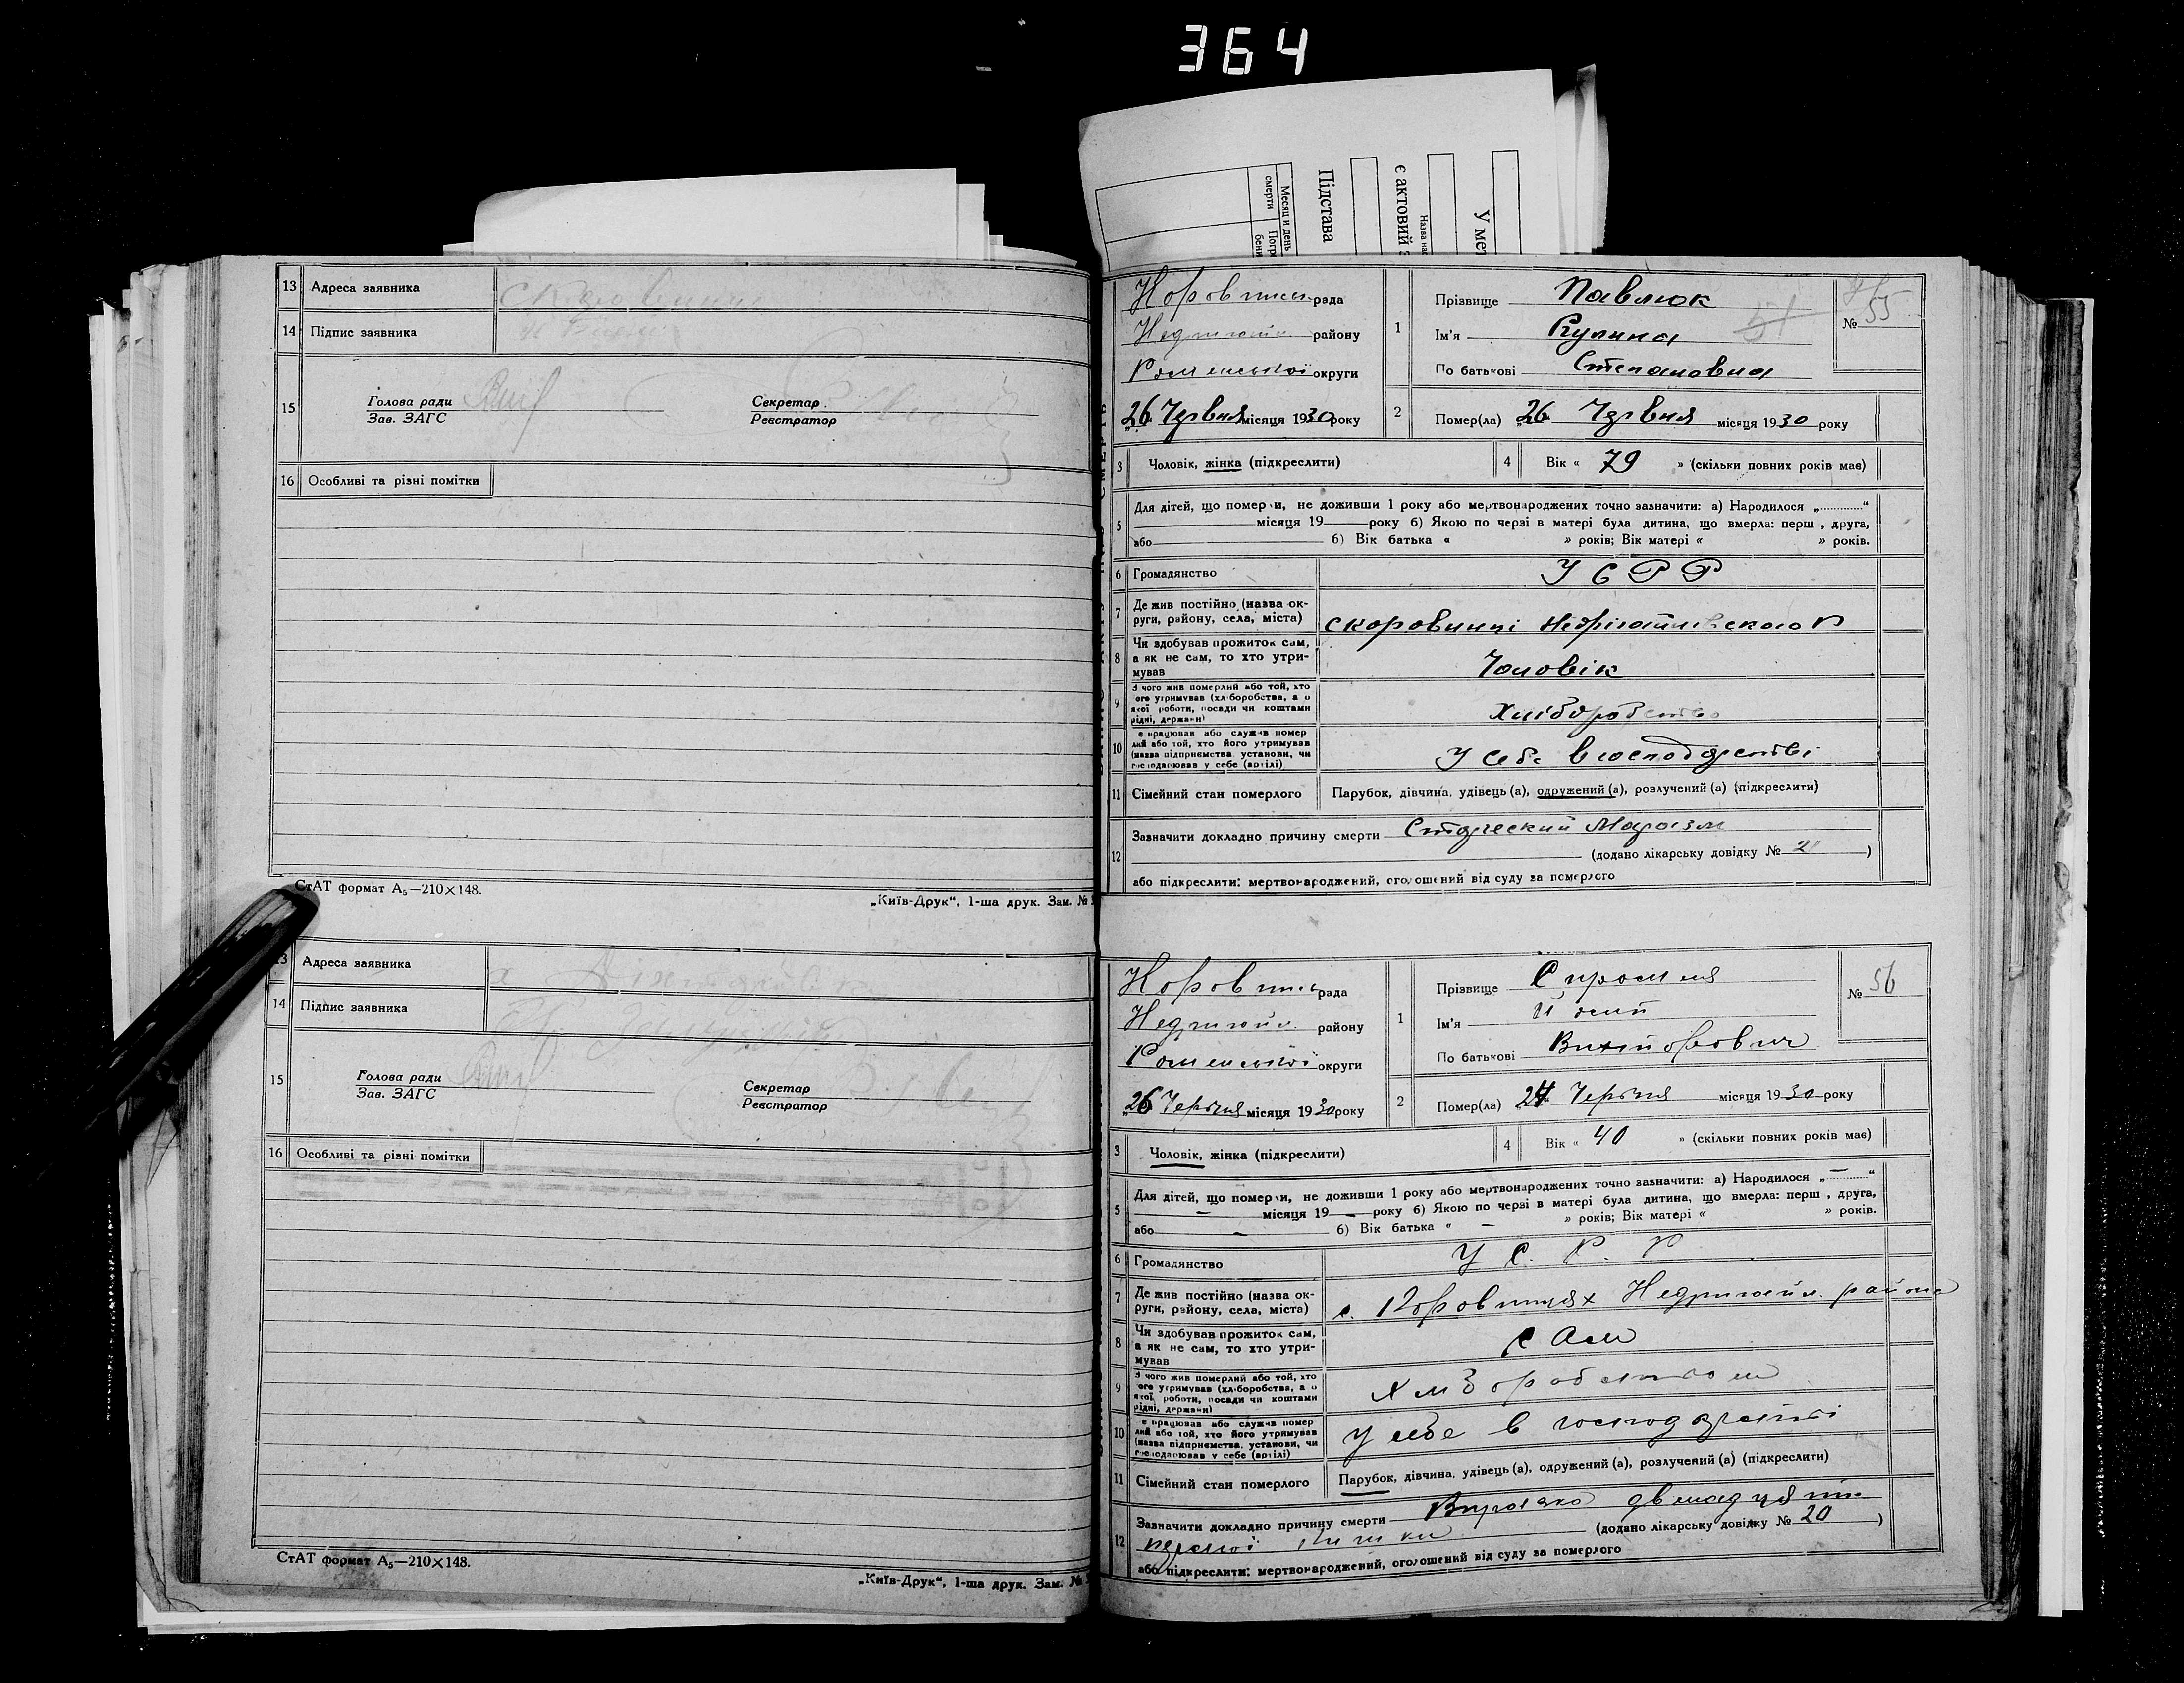 364
Підстава
є актовий
Назва
У мет
Месяц и день
смерти
13 Адреса заявника
14 Підпис заявника
15 Голова ради
Зав. ЗАГС
Секретар
Реєстратор
16 Особливі та різні помітки
СтАТ формат А₅—210×148.
„Київ-Друк“, 1-ша друк. Зам. №
рада
району
Роменської округи
„26 Червня місяця 1930 року
1 Прізвище Павлюк
Ім'я
По батькові Степановна
№ 55
2 Помер(ла) 26 Червня місяця 1930 року
3 Чоловік, жінка (підкреслити)
4 Вік « 79 » (скільки повних років має)
5 Для дітей, що померли, не доживши 1 року або мертвонароджених точно зазначити: а) Народилося „............“
місяця 19 року б) Якою по черзі в матері була дитина, що вмерла: перш , друга,
або б) Вік батька « » років; Вік матері « » років.
6 Громадянство УСРР
7 Де жив постійно (назва ок-
руги, району, села, міста) с коровинці
8 Чи здобував прожиток сам,
а як не сам, то хто утри-
мував Чоловік
9 З чого жив померлий або той, хто
ого утримував (хліборобства, а
якої роботи, посади чи коштами
рідні, держави) Хліборобство
10 е працював або служив помер
лий або той, хто його утримував
(назва підприємства, установи, чи
господарював у себе (артілі) У себе в господарстві
11 Сімейний стан померлого Парубок, дівчина, удівець (а), одружений (а), розлучений (а) (підкреслити)
12 Зазначити докладно причину смерти Старческий Маразм
(додано лікарську довідку № )
або підкреслити: мертвонароджений, оголошений від суду за померлого
13 Адреса заявника
14 Підпис заявника
15 Голова ради
Зав. ЗАГС
Секретар
Реєстратор
16 Особливі та різні помітки
СтАТ формат А₅—210×148.
„Київ-Друк“, 1-ша друк. Зам. №
рада
Недригайл. району
Роменської округи
„26 Червня місяця 1930 року
1 Прізвище
Ім'я
По батькові
№ 56
2 Помер(ла) 24 Червня місяця 1930 року
3 Чоловік, жінка (підкреслити)
4 Вік « 40 » (скільки повних років має)
5 Для дітей, що померли, не доживши 1 року або мертвонароджених точно зазначити: а) Народилося „—“
— місяця 19 — року б) Якою по черзі в матері була дитина, що вмерла: перш , друга,
або — б) Вік батька « — » років; Вік матері « » років.
6 Громадянство У С. Р. Р
7 Де жив постійно (назва ок-
руги, району, села, міста) с. Коровинцях Недригайл. района
8 Чи здобував прожиток сам,
а як не сам, то хто утри-
мував сам
9 З чого жив померлий або той, хто
ого утримував (хліборобства, а
якої роботи, посади чи коштами
рідні, держави) Хліборобством
10 е працював або служив помер
лий або той, хто його утримував
(назва підприємства, установи, чи
господарював у себе (артілі) у себе в господарстві
11 Сімейний стан померлого Парубок, дівчина, удівець (а), одружений (а), розлучений (а) (підкреслити)
12 Зазначити докладно причину смерти
(додано лікарську довідку № 20 )
або підкреслити: мертвонароджений, оголошений від суду за померлого